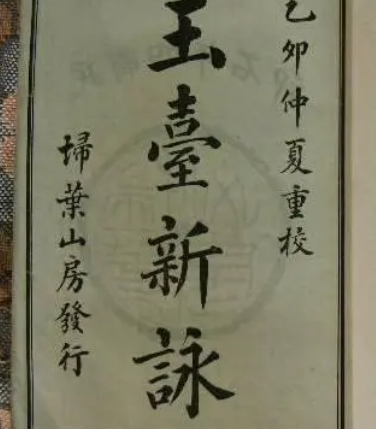 乙卯仲夏重校
玉臺新詠
埽葉山房發行